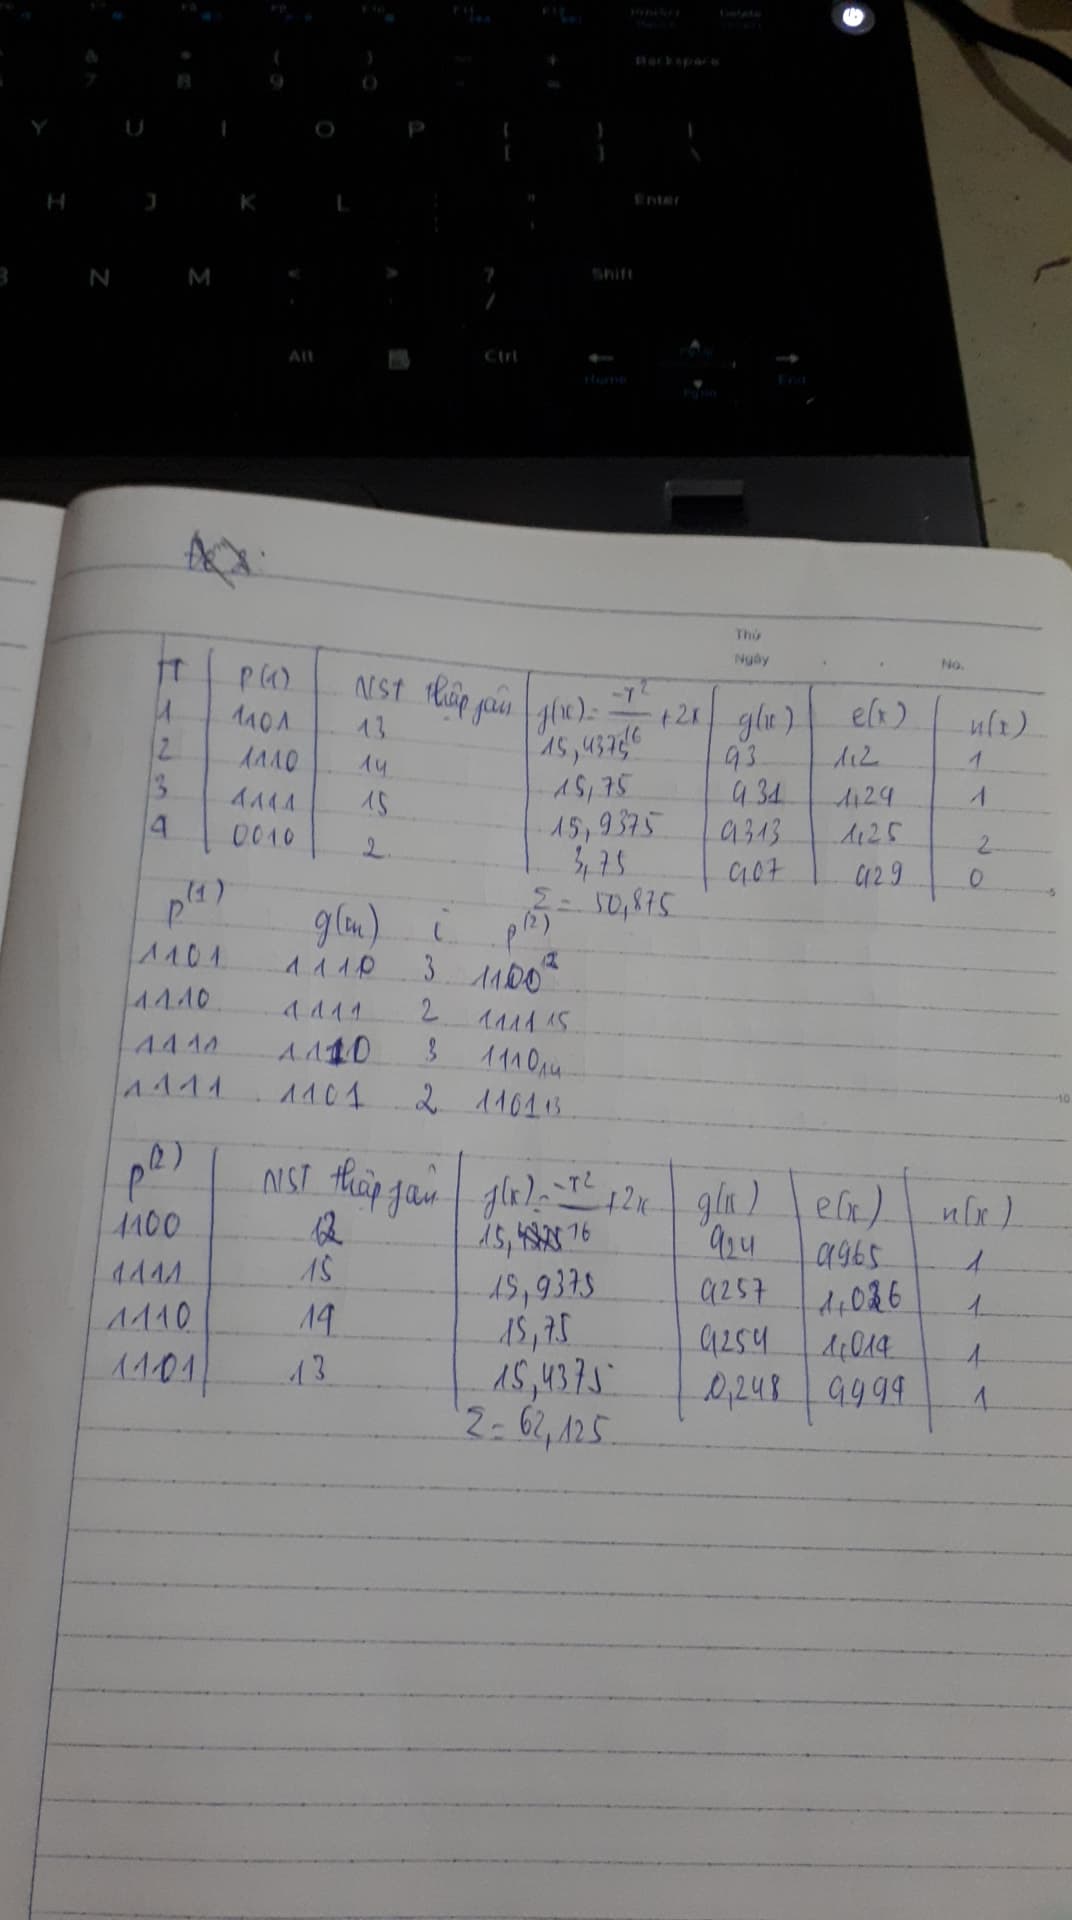 & * ( ) — + Backspace
7 8 9 0 - =
Y U I O P { } |
[ ] \
H J K L : " Enter
; '
N M < > ? Shift
, . /
Alt Ctrl ← ▲ →
Home PgUp End
▼
PgDn
Thứ
Ngày . . No.
TT P(1) NST thập phân f(x)=-x²/16+2x g(x) e(x) n(x)
1 1101 13 15,4375 0,3 1,2 1
2 1110 14 15,75 0,31 1,24 1
3 1111 15 15,9375 0,313 1,25 2
4 0010 2 3,75 0,07 0,29 0
Σ = 50,875
P(1) i P(2)
1101 1110 3 1100 12
1110 1111 2 1111 15
1111 1110 3 1110 14
1111 1101 2 1101 13
10
P(2) NST thập phân f(x)=-x²/16+2x g(x) e(x) n(x)
1100 12 15, 0,24 0,965 1
1111 15 15,9375 0,257 1,026 1
1110 14 15,75 0,254 1,014 1
1101 13 15,4375 0,248 0,994 1
Σ = 62,125